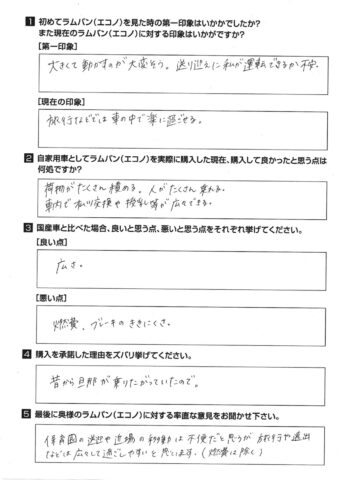 1 初めてラムバン(エコノ)を見た時の第一印象はいかかでしたか?
また現在のラムバン(エコノ)に対する印象はいかがですか?
[第一印象]
大きくて動かすのが大変そう。送り迎えに私が運転できるか不安。
[現在の印象]
旅行などでは車の中で楽に過ごせる。
2 自家用車としてラムバン(エコノ)を実際に購入した現在、購入して良かったと思う点は
何処ですか?
荷物がたくさん積める。人がたくさん乗れる。
車内でおむつ交換や授乳等が広々できる。
3 国産車と比べた場合、良いと思う点、悪いと思う点をそれぞれ挙げてください。
[良い点]
広さ。
[悪い点]
燃費、ブレーキのききにくさ。
4 購入を承諾した理由をズバリ挙げてください。
昔から旦那が乗りたがっていたので。
5 最後に奥様のラムバン(エコノ)に対する率直な意見をお聞かせ下さい。
保育園の送迎や近場の移動は不便だと思うが 旅行や遠出
などは広々して過ごしやすいと思います。(燃費は除く)